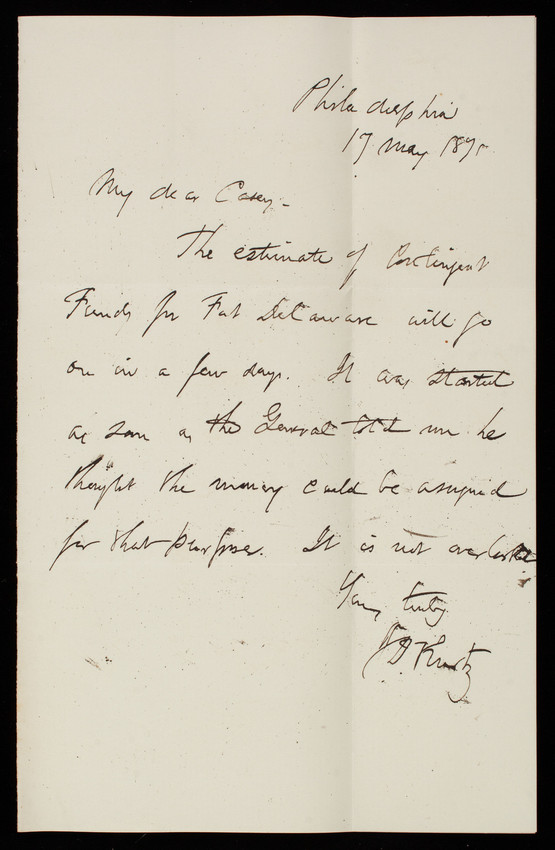 Philadelphia
17 May 187
My dear Casey -
The estimate of Contingent
Funds for Fort Delaware will go
on in a few days. It was started
as soon as the General told me he
thought the money could be assigned
for that purpose. It is not overlooked
Yours truly
J D Kurtz